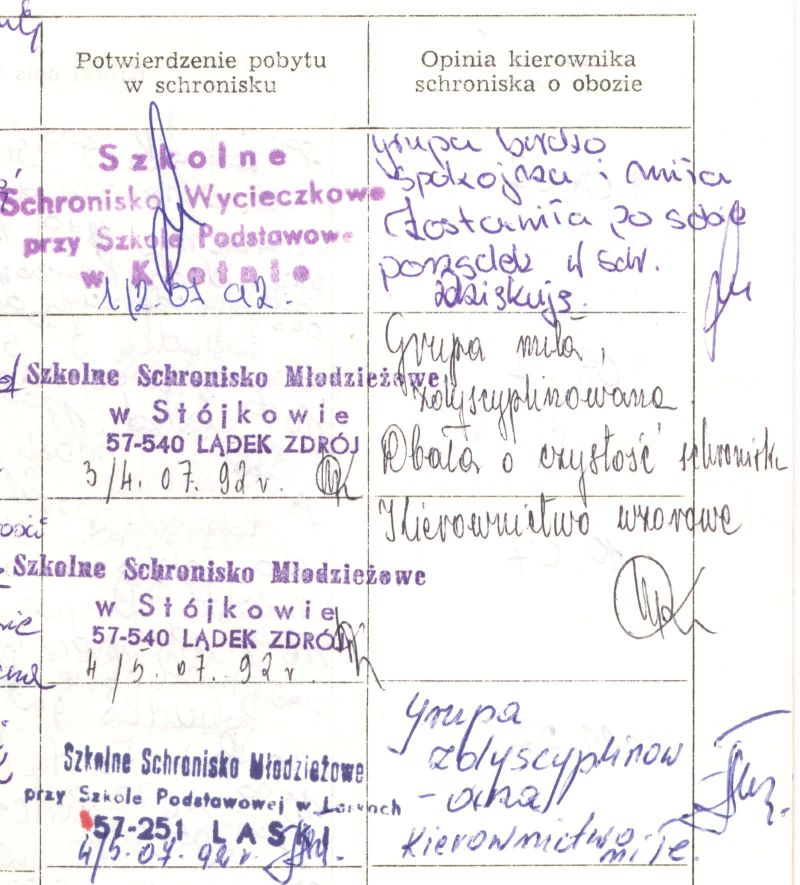 Potwierdzenie pobytu
w schronisku
Opinia kierownika
schroniska o obozie
Szkolne
Schronisko Wycieczkowe
przy Szkole Podstawowe
w
1/2.07 92.
grupa bardzo
spokojna i miła
zostawiła po sobie
porządek w schr.
Dziękuję.
Szkolne Schronisko Młodzieżowe
w Stójkowie
57-540 LĄDEK ZDRÓJ
3/4. 07. 92 r.
Grupa miła,
zdyscyplinowana.
Dbała o czystość schroniska
Kierownictwo wzorowe
Szkolne Schronisko Młodzieżowe
w Stójkowie
57-540 LĄDEK ZDRÓJ
4/5. 07. 92 r.
Szkolne Schronisko Młodzieżowe
przy Szkole Podstawowej w Laskach
57-251 LASKI
4/5.07. 92 r.
grupa
zdyscyplinow
-ana
Kierownictwo
miłe.